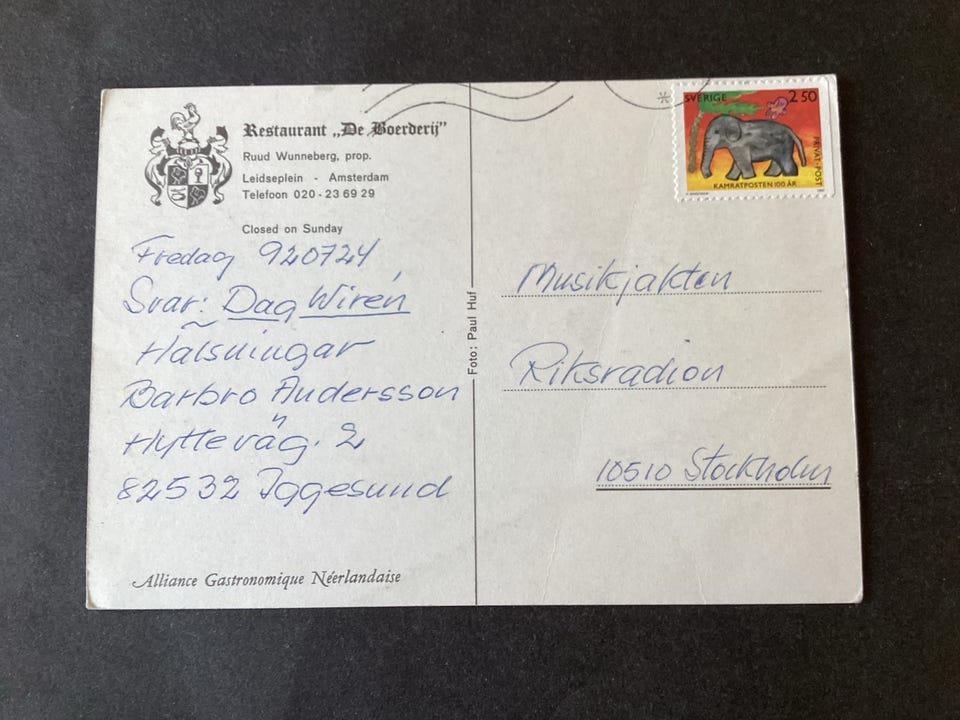 Restaurant „De Boerderij"
Ruud Wunneberg, prop.
Leidseplein - Amsterdam
Telefoon 020 - 23 69 29
Closed on Sunday
Fredag 920724
Svar: Dag Wirén
Hälsningar
Barbro Andersson
Hytteväg. 2
82532 Iggesund
Alliance Gastronomique Néerlandaise
Foto: Paul Huf
SVERIGE 2 50
PRIVAT-POST
KAMRATPOSTEN 100 ÅR
Musikjakten
Riksradion
10510 Stockholm